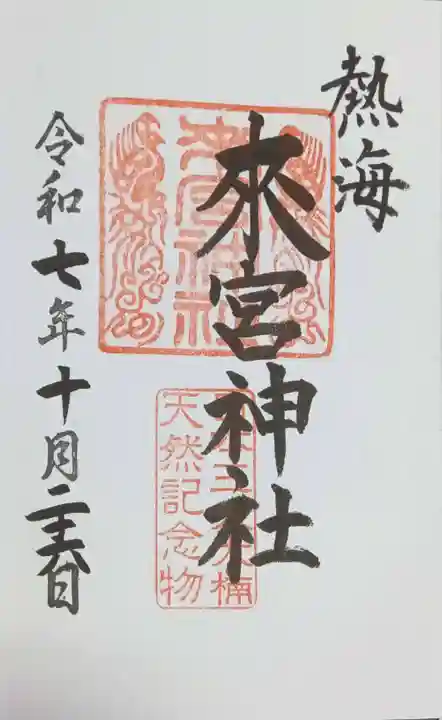 熱海
來宮神社
來宮神社
天然記念物
令和七年十月二十六日